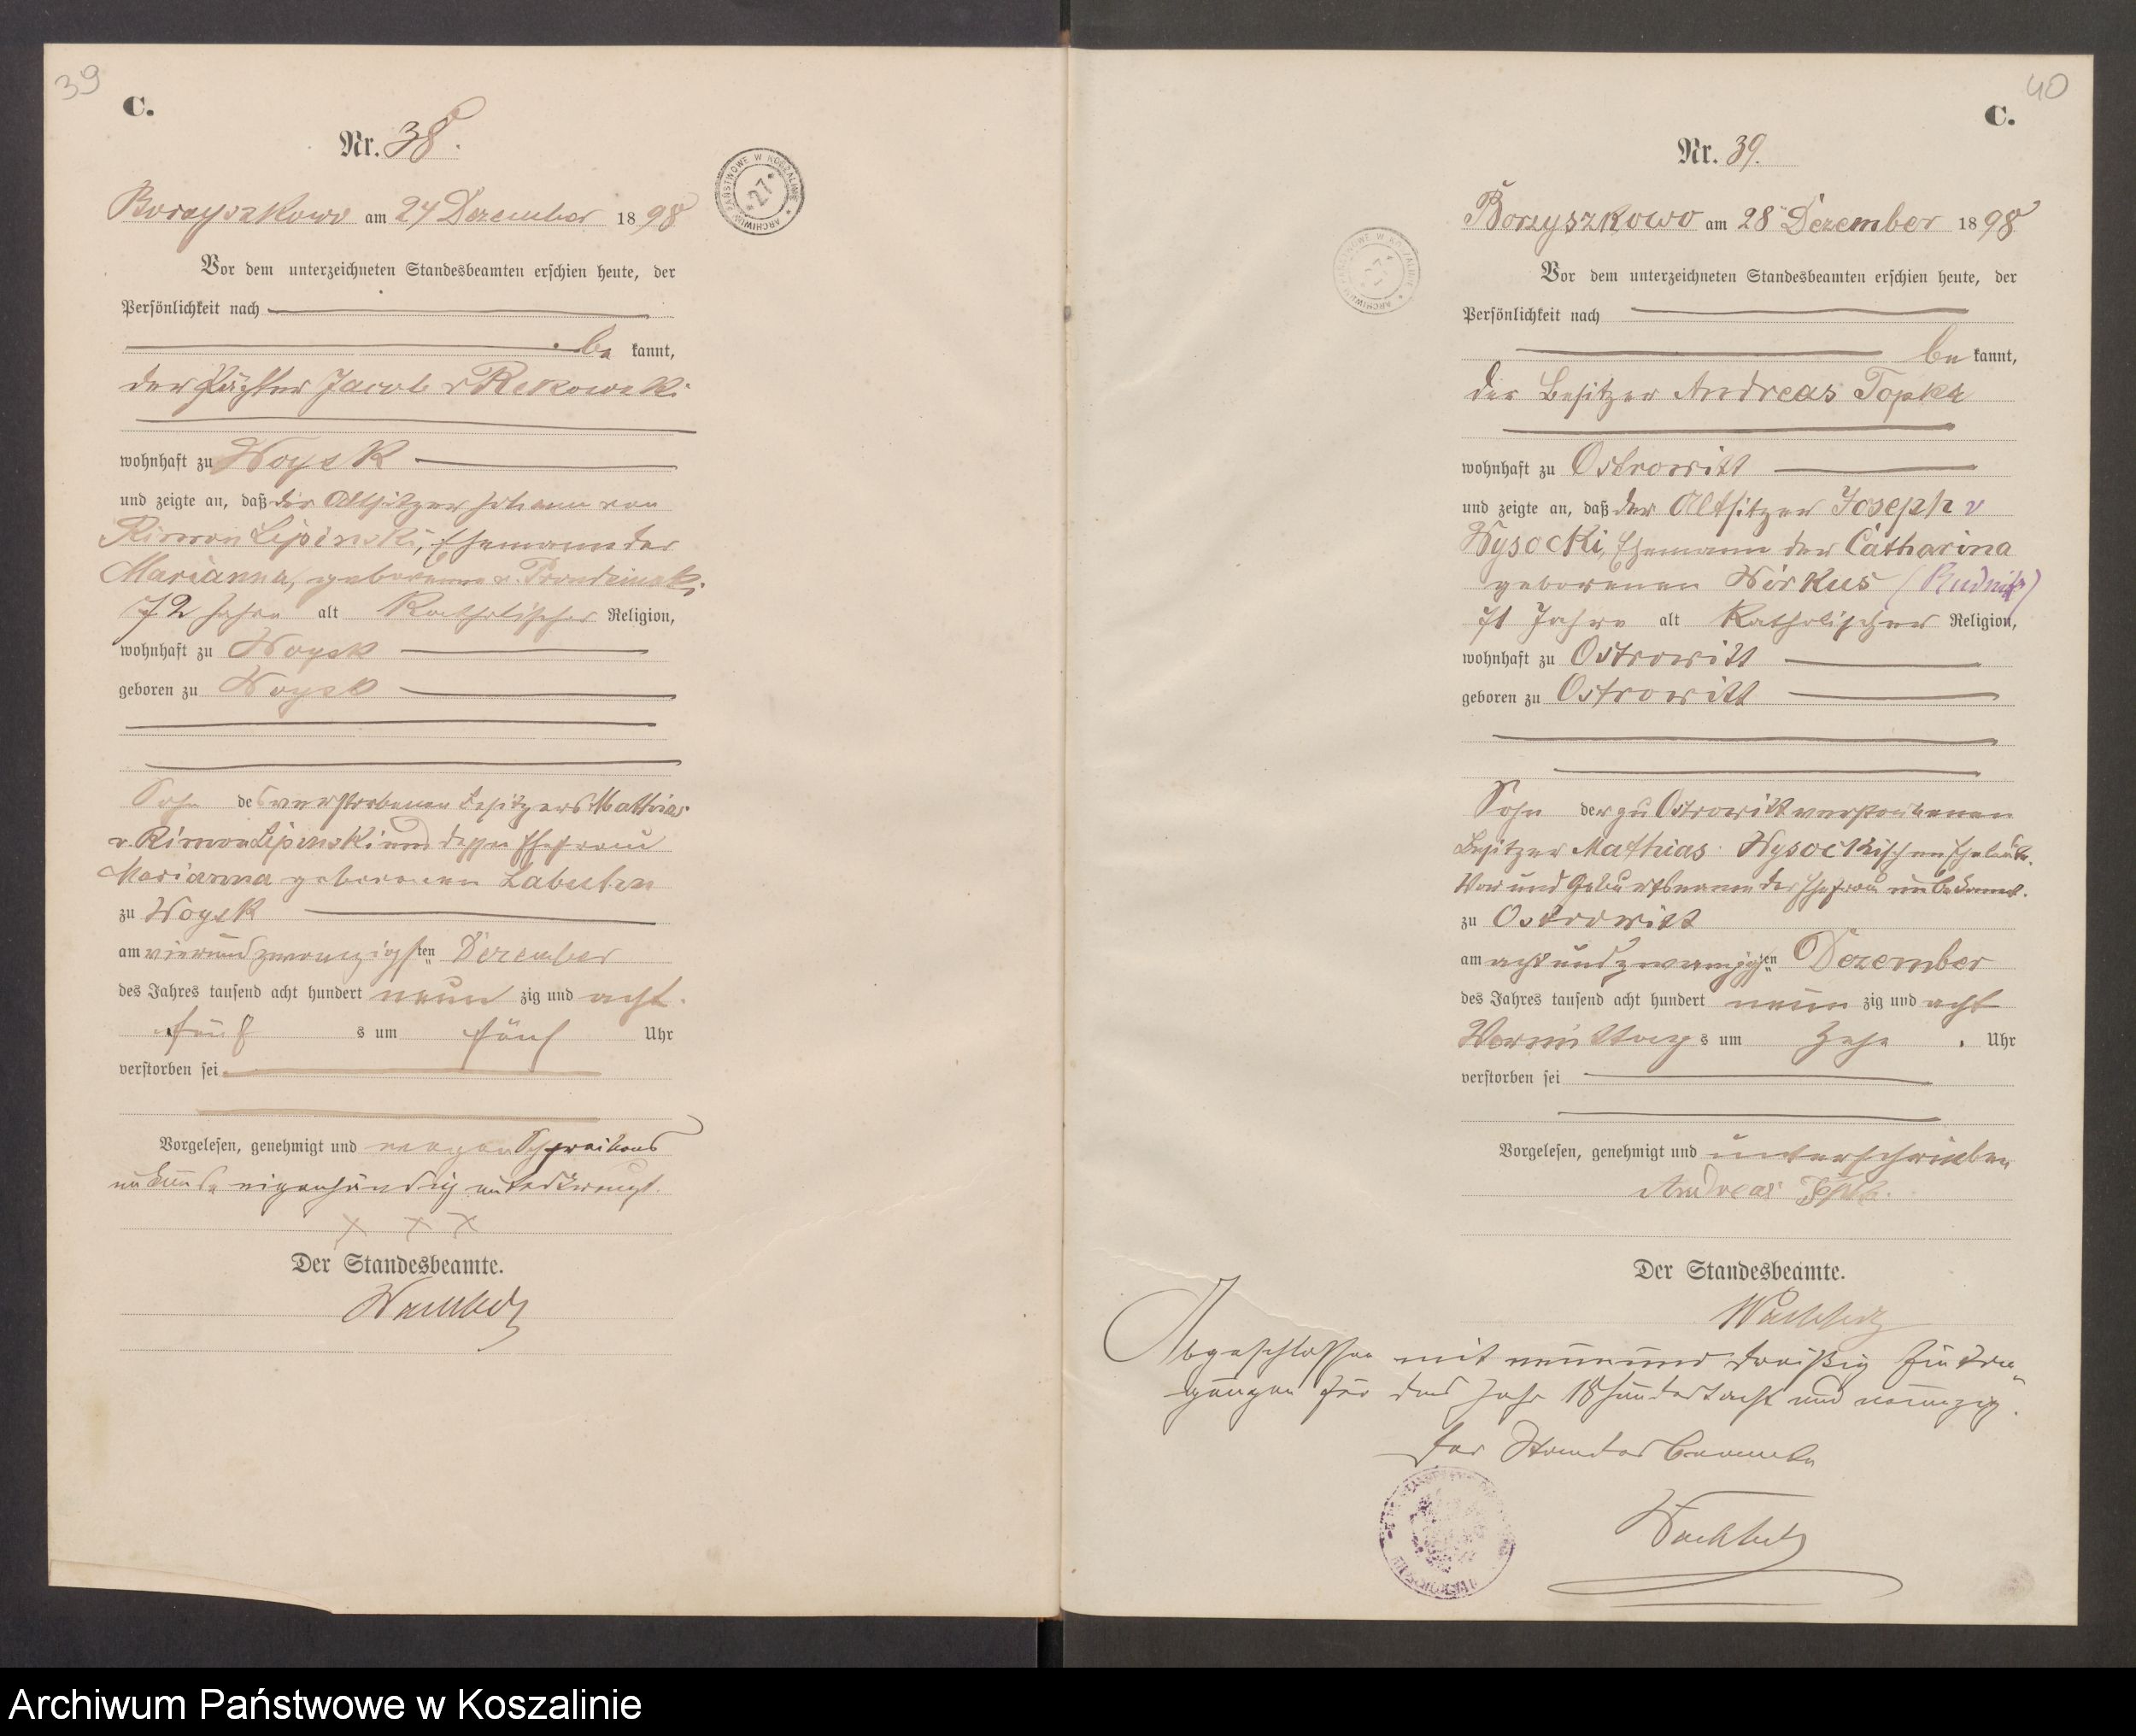 39
C.
Nr. 38.
Borzyszkowo am 24 Dezember 1898
Vor dem unterzeichneten Standesbeamten erschien heute, der
Persönlichkeit nach
be kannt,
der Pächter Jacob v Rekowski
wohnhaft zu Woysk
und zeigte an, daß der Altsitzer Johann von
Rimon Lipinski, Ehemann der
Marianna, geborenen v. Prondzinski
72 Jahre alt Katholischer Religion,
wohnhaft zu Woysk
geboren zu Woysk
Sohn des verstorbenen Besitzers Mathias
v. Rimon Lipinski und dessen Ehefrau
Marianna geborenen
zu Woysk
am vierundzwanzigsten Dezember
des Jahres tausend acht hundert neun zig und acht
früh s um fünf Uhr
verstorben sei
Vorgelesen, genehmigt und wegen Schreibens
unkunde eigenhändig unterkreuzt.
x x x
Der Standesbeamte.
ARCHIWUM PAŃSTWOWE W KOSZALINIE
*27*
40
C.
Nr. 39.
Borzyszkowo am 28 Dezember 1898
Vor dem unterzeichneten Standesbeamten erschien heute, der
Persönlichkeit nach
be kannt,
der Besitzer Andreas Topka
wohnhaft zu Ostrowitt
und zeigte an, daß der Altsitzer Joseph v
Wysocki, Ehemann der Catharina
geborenen Wirkus (Rudnik)
71 Jahre alt Katholischer Religion,
wohnhaft zu Ostrowitt
geboren zu Ostrowitt
Sohn der zu Ostrowitt verstorbenen
Besitzer Mathias Wysockischen Eheleute.
Vor und Geburtsname der Ehefrau unbekannt.
zu Ostrowitt
am acht und zwanzigsten Dezember
des Jahres tausend acht hundert neun zig und acht
Vormittag s um Zehn Uhr
verstorben sei
Vorgelesen, genehmigt und unterschrieben
Andreas Topka.
Der Standesbeamte.
Abgeschlossen mit neunund dreißig Eintra
gungen für das Jahr 18hundertacht und neunzig.
Der Standesbeamte
Archiwum Państwowe w Koszalinie